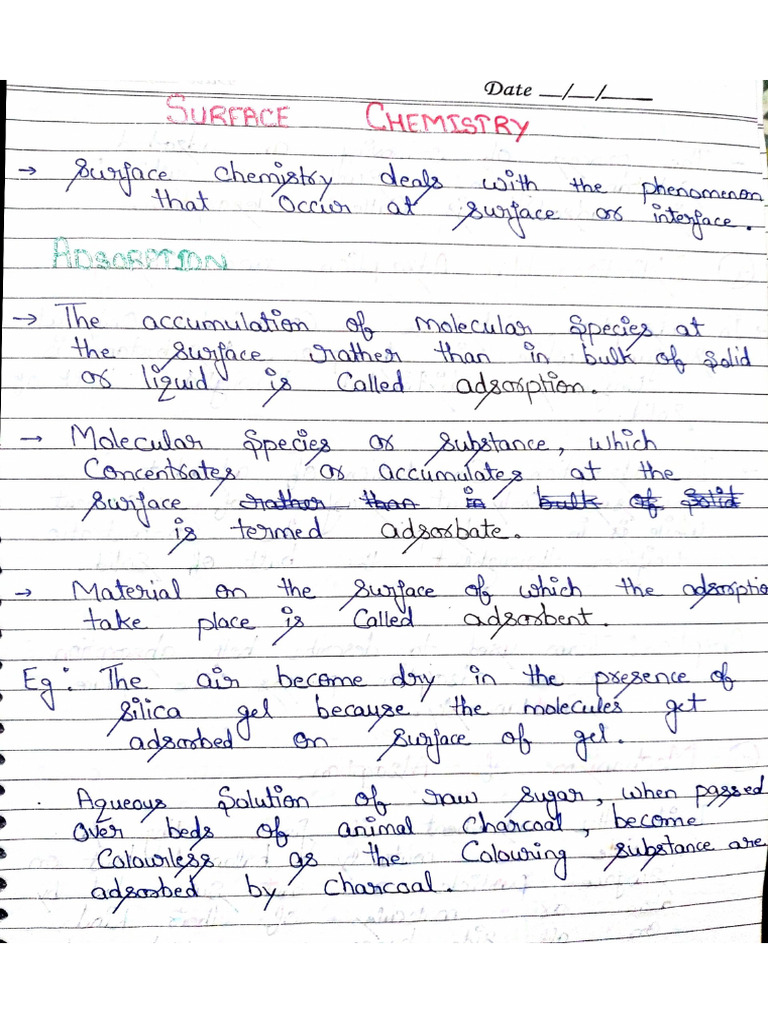 Date __/__/____
SURFACE CHEMISTRY
→ Surface chemistry deals with the phenomenon
that occur at surface or interface.
ADSORPTION
→ The accumulation of molecular species at
the surface rather than in bulk of solid
or liquid is called adsorption.
→ Molecular species or substance, which
concentrates or accumulates at the
surface rather than in bulk of solid
is termed adsorbate.
→ Material on the surface of which the adsorptio
take place is called adsorbent.
Eg: The air become dry in the presence of
silica gel because the molecules get
adsorbed on surface of gel.
. Aqueous solution of raw sugar, when passed
over beds of animal charcoal, become
colourless as the colouring substance are
adsorbed by charcoal.